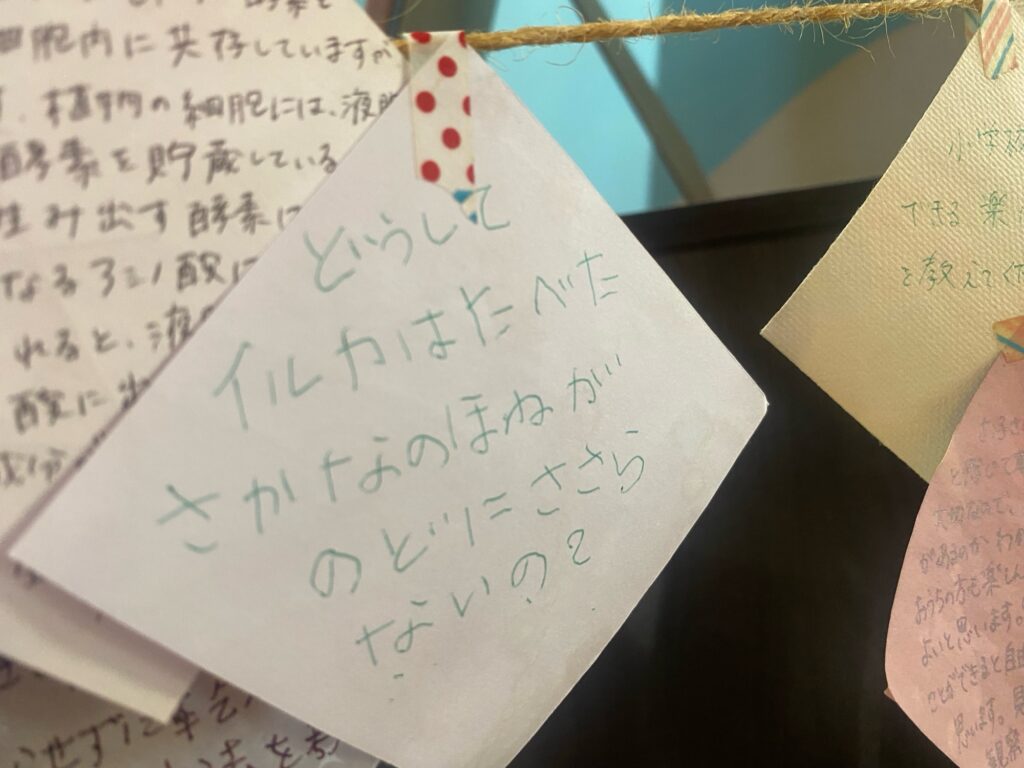 細胞内に共存していますが
植物の細胞には、液
酵素を貯蔵している
生み出す酵素に
なるアミノ酸に
れると、液
酸に出
成分
どうして
イルカはたべた
さかなのほねが
のどにささら
ないの?
せずに
小学
できる楽
を教えてくだ
お子さ
と聞いて
があるのかわか
おうちの方も楽しん
よいと思います。
ことができると自由
思います。見
観察